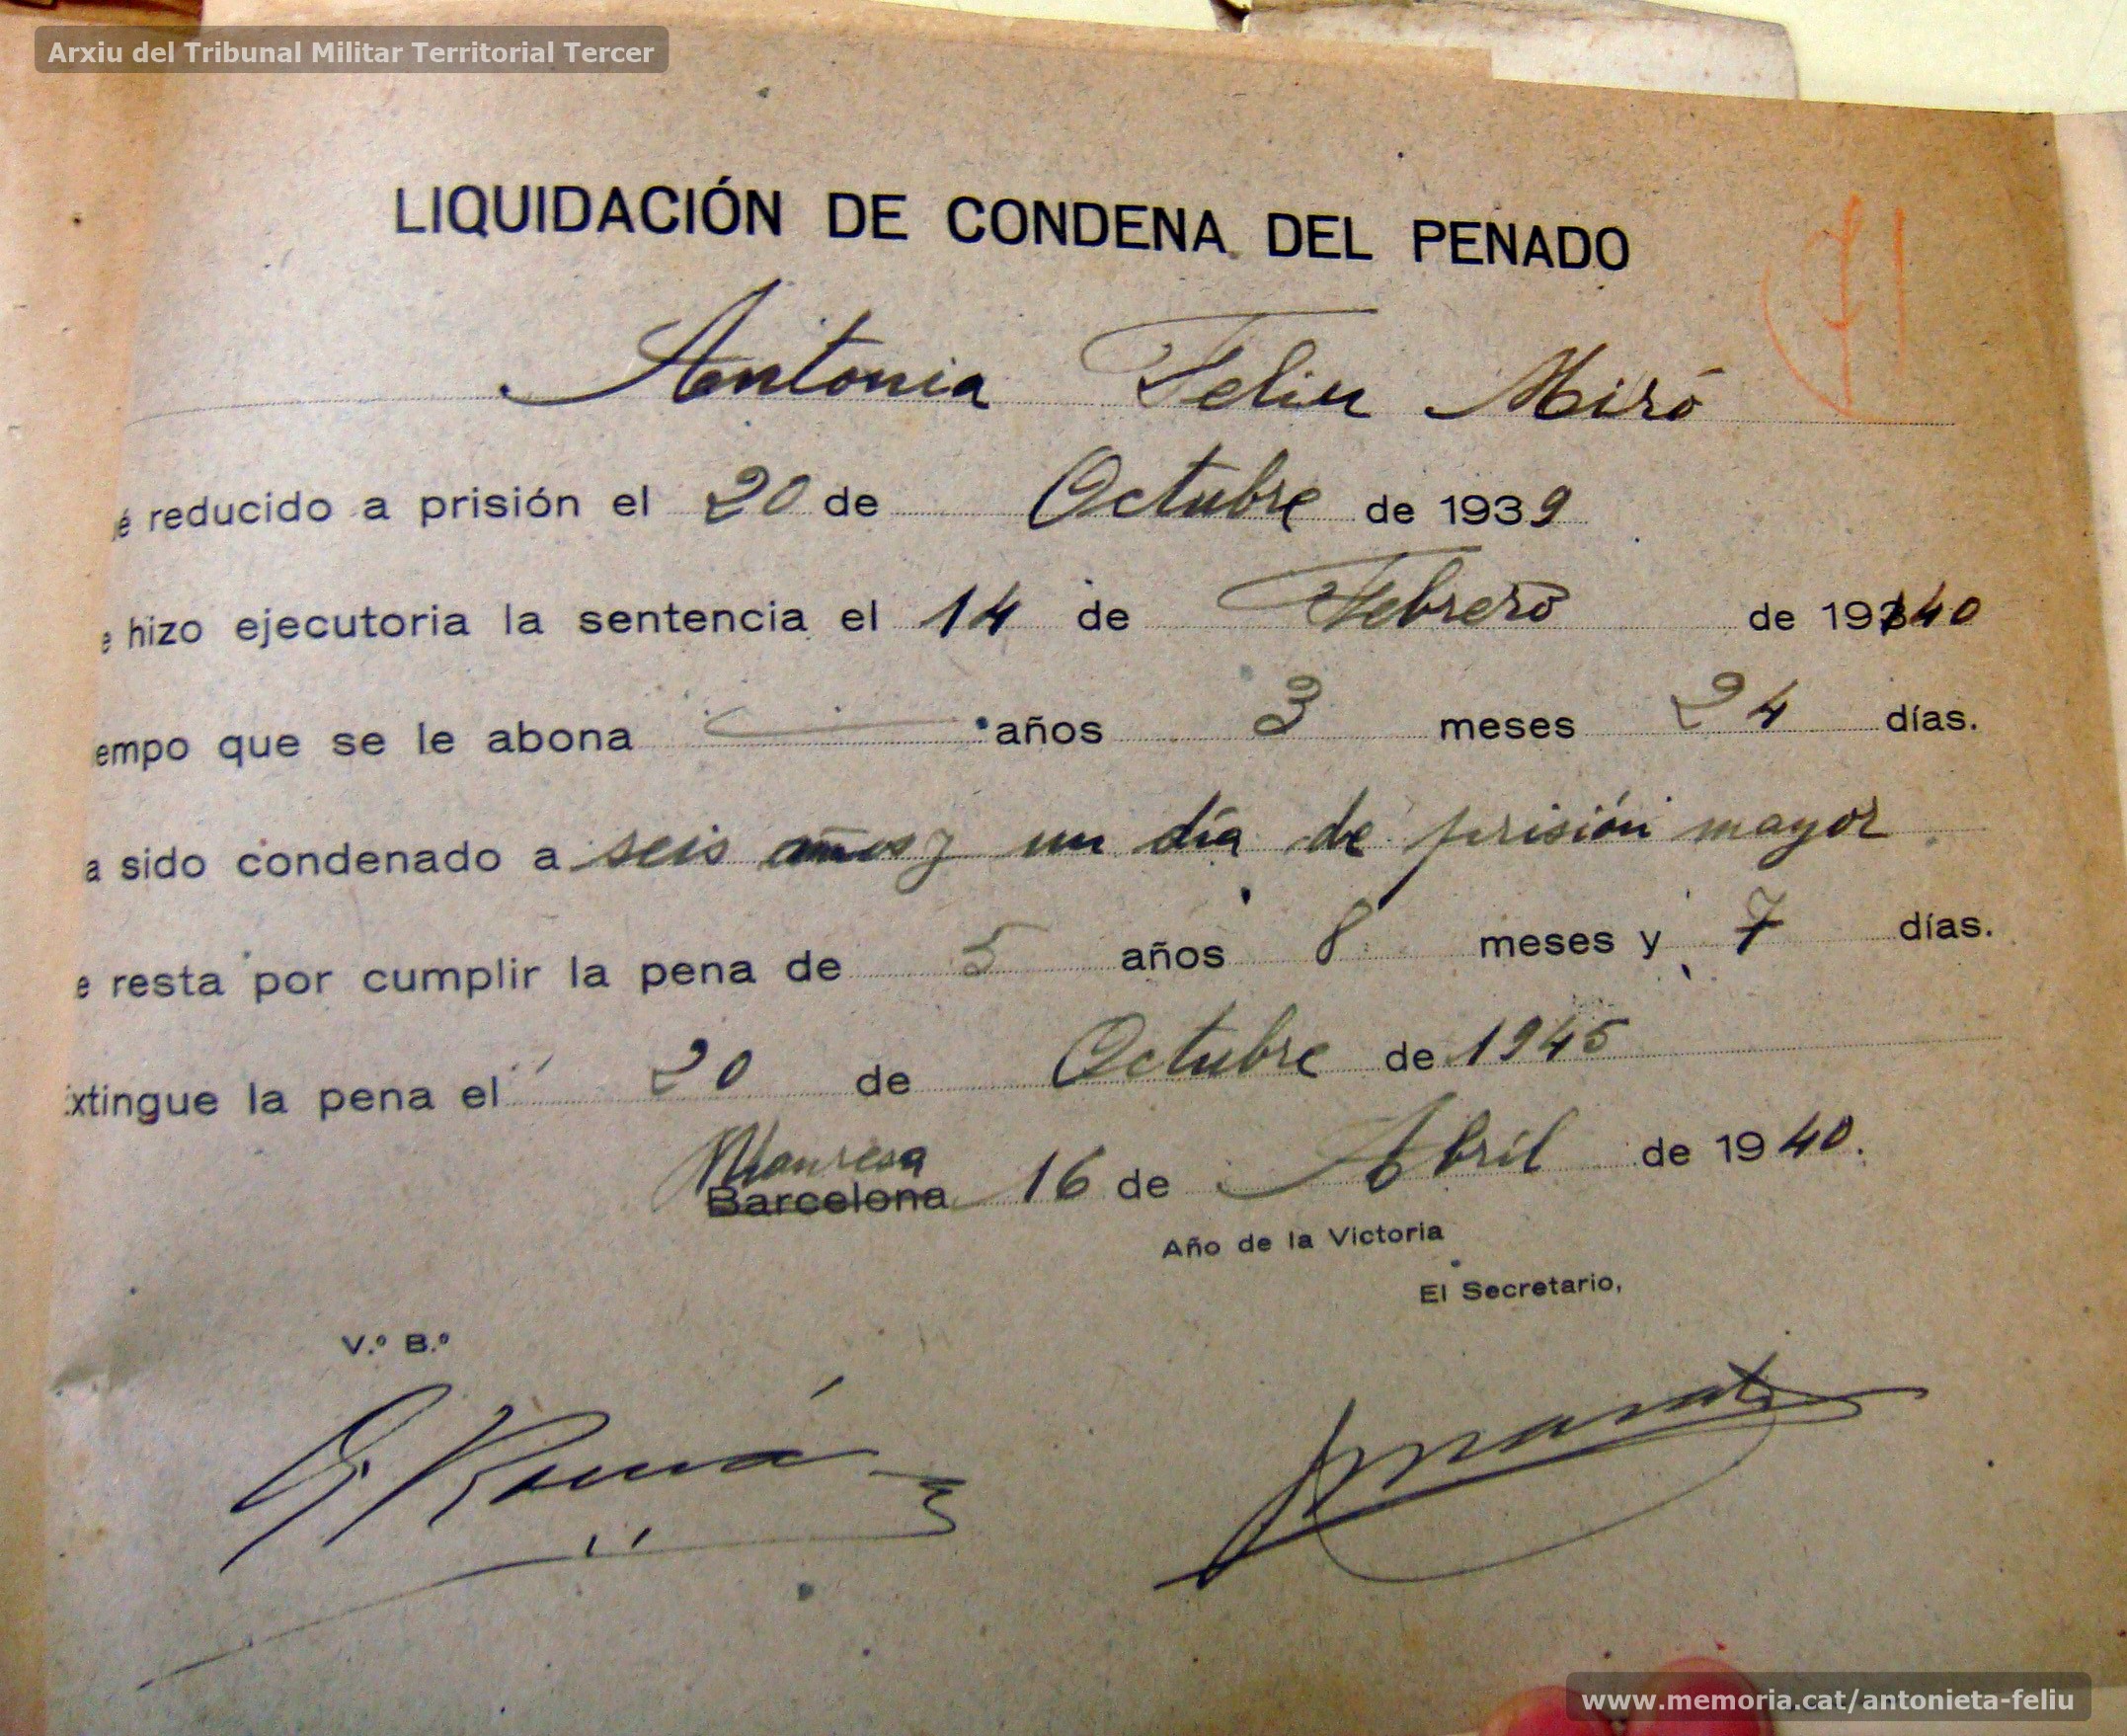 Arxiu del Tribunal Militar Territorial Tercer
LIQUIDACIÓN DE CONDENA DEL PENADO
71
Antonia Feliu Miró
é reducido a prisión el 20 de Octubre de 1939
e hizo ejecutoria la sentencia el 14 de Febrero de 19340
empo que se le abona — años 3 meses 24 días.
a sido condenado a seis años y un día de prisión mayor
e resta por cumplir la pena de 5 años 8 meses y 7 días.
xtingue la pena el 20 de Octubre de 1945
Manresa
Barcelona 16 de Abril de 1940.
Año de la Victoria
El Secretario,
V.º B.º
G. Román
www.memoria.cat/antonieta-feliu